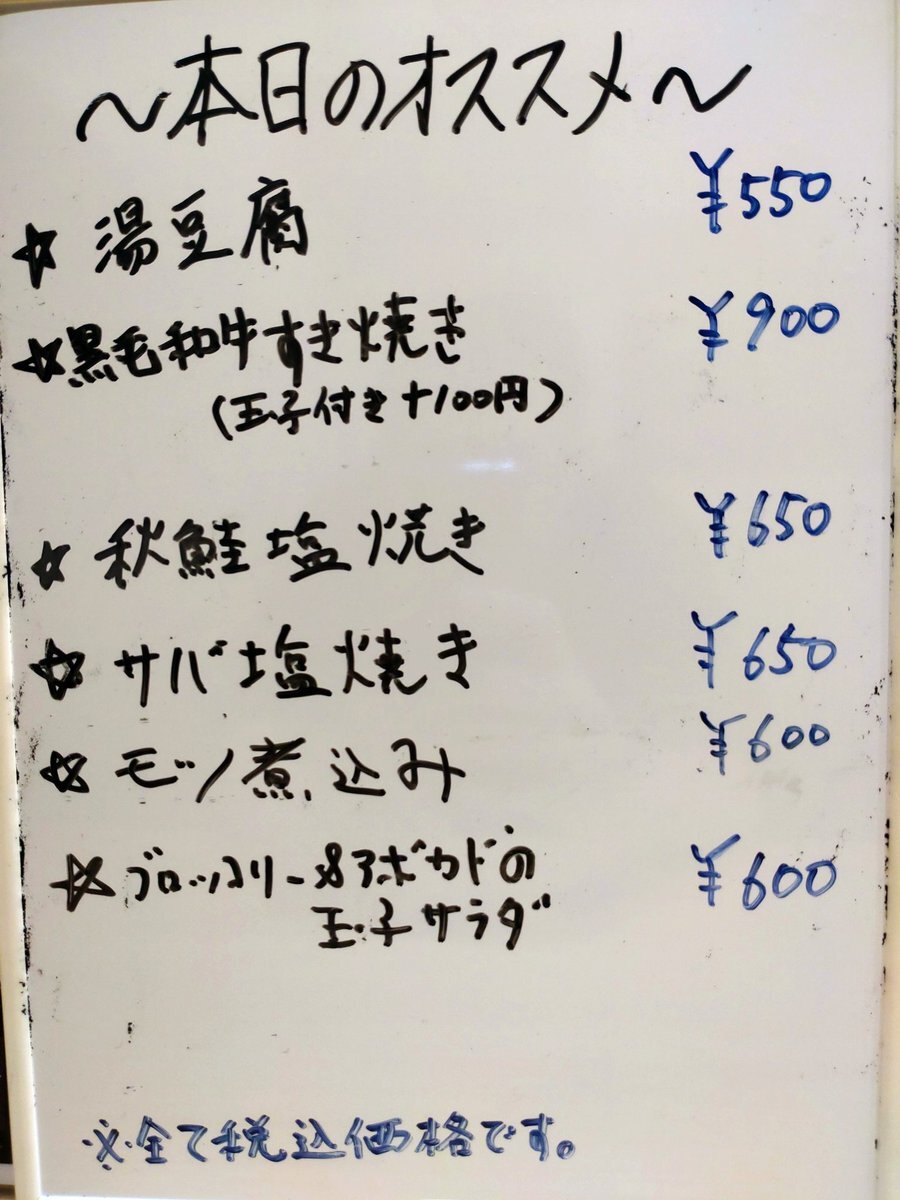 ～本日のオススメ～
☆ 湯豆腐 ¥550
☆黒毛和牛すき焼き ¥900
(玉子付き+100円)
☆ 秋鮭塩焼き ¥650
☆ サバ塩焼き ¥650
☆ モツ煮込み ¥600
☆ ブロッコリー&アボカドの ¥600
玉子サラダ
※全て税込価格です。